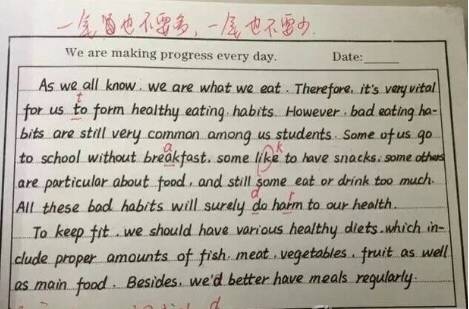 一尾
也不要多,一尾也不要少.
We are making progress every day. Date:
As we all know, we are what we eat. Therefore, it's very vital
for us to form healthy eating habits. However, bad eating ha-
bits are still very common among us students. Some of us go
to school without breakfast, some like to have snacks, some others
are particular about food, and still some eat or drink too much.
All these bad habits will surely do harm to our health.
To keep fit, we should have various healthy diets, which in-
clude proper amounts of fish, meat, vegetables, fruit as well
as main food. Besides, we'd better have meals regularly.
t
a
k
d
r